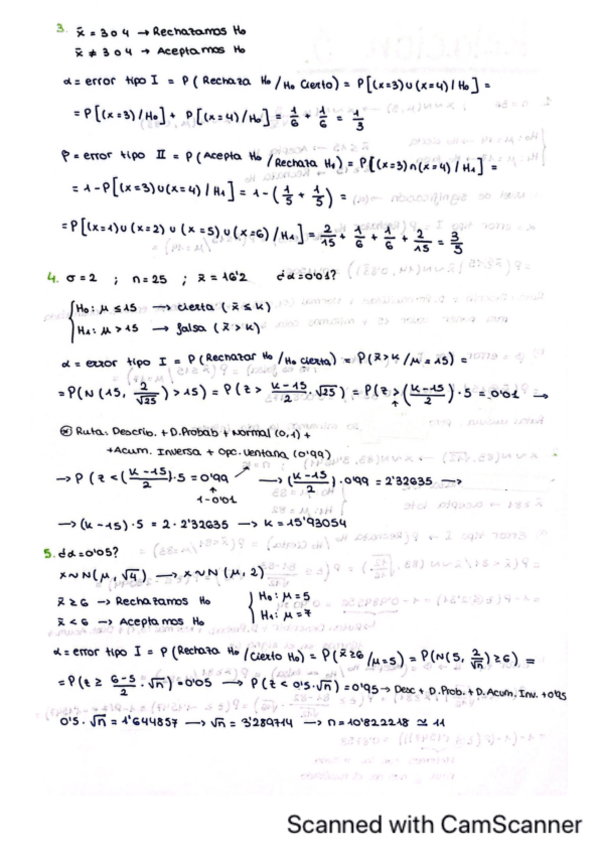 3. x̄ = 3 o 4 → Rechazamos H₀
x̄ ≠ 3 o 4 → Aceptamos H₀
α = error tipo I = P (Rechaza H₀ / H₀ cierto) = P[(x=3)∪(x=4) / H₀] =
= P[(x=3)/H₀] + P[(x=4)/H₀] = 1/6 + 1/6 = 1/3
β = error tipo II = P (Acepta H₀ / Rechaza H₀) = P[(x≠3)∩(x≠4) / H₁] =
= 1 - P[(x=3)∪(x=4) / H₁] = 1 - (1/5 + 1/5) =
= P[(x=1)∪(x=2)∪(x=5)∪(x=6) / H₁] = 2/15 + 1/6 + 1/6 + 2/15 = 3/5
4. σ = 2 ; n = 25 ; x̄ = 16'2 ¿α = 0'01?
H₀: μ ≤ 15 → cierta (x̄ ≤ k)
H₁: μ > 15 → falsa (x̄ > k)
α = error tipo I = P (Rechazar H₀ / H₀ cierta) = P(x̄ > k / μ = 15) =
= P(N(15, 2/√25) > 15) = P(z > k-15/2 · √25) = P(z > (k-15/2) · 5 = 0'01 →
⊛ Ruta: Describ. + D.Probab + Normal (0,1) +
+ Acum. Inversa + Opc. Ventana (0'99)
→ P (z < (k-15/2) · 5 = 0'99 → (k-15/2) · 0'99 = 2'32635 →
1-0'01
→ (k-15) · 5 = 2 · 2'32635 → k = 15'93054
5. ¿α = 0'05?
x ~ N(μ, √4) → x ~ N (μ, 2)
x̄ ≥ 6 → Rechazamos H₀ H₀: μ = 5
x̄ < 6 → Aceptamos H₀ H₁: μ = 7
α = error tipo I = P (Rechaza H₀ / cierto H₀) = P(x̄ ≥ 6 / μ = 5) = P(N(5, 2/√n) ≥ 6) =
= P(z ≥ 6-5/2 · √n) = 0'05 → P(z < 0'5 · √n) = 0'95 → Desc + D.Prob. + D.Acum. Inv. + 0'95
0'5 · √n = 1'644857 → √n = 3'289714 → n = 10'822218 ≃ 11
Scanned with CamScanner